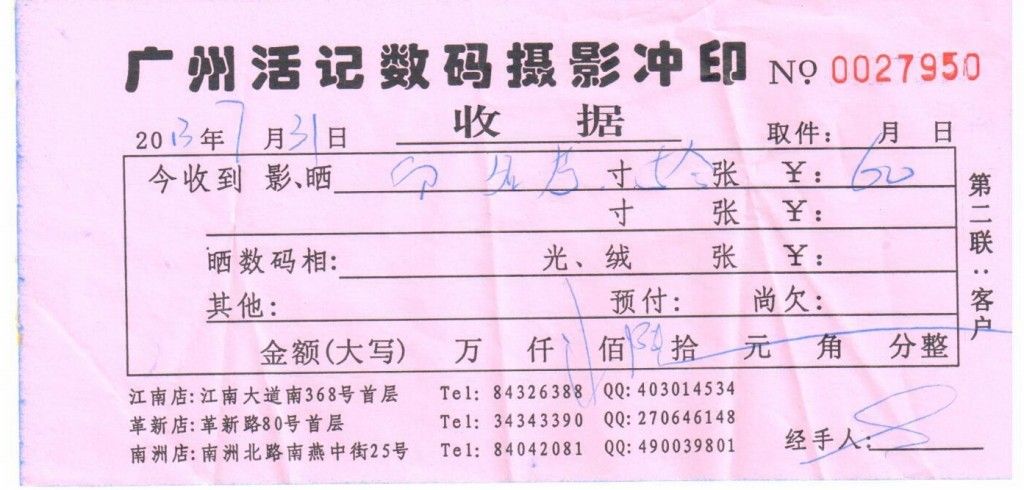 广州活记数码摄影冲印 No 0027950
收据
2013年7月31日 取件: 月 日
今收到 影、晒 印 寸 张 ¥: 60
寸 张 ¥:
晒数码相: 光、绒 张 ¥:
其他: 预付: 尚欠:
金额(大写) 万 仟 佰 陆 拾 元 角 分整
第二联:客户
江南店:江南大道南368号首层 Tel: 84326388 QQ: 403014534
革新店:革新路80号首层 Tel: 34343390 QQ: 270646148
南洲店:南洲北路南燕中街25号 Tel: 84042081 QQ: 490039801
经手人: